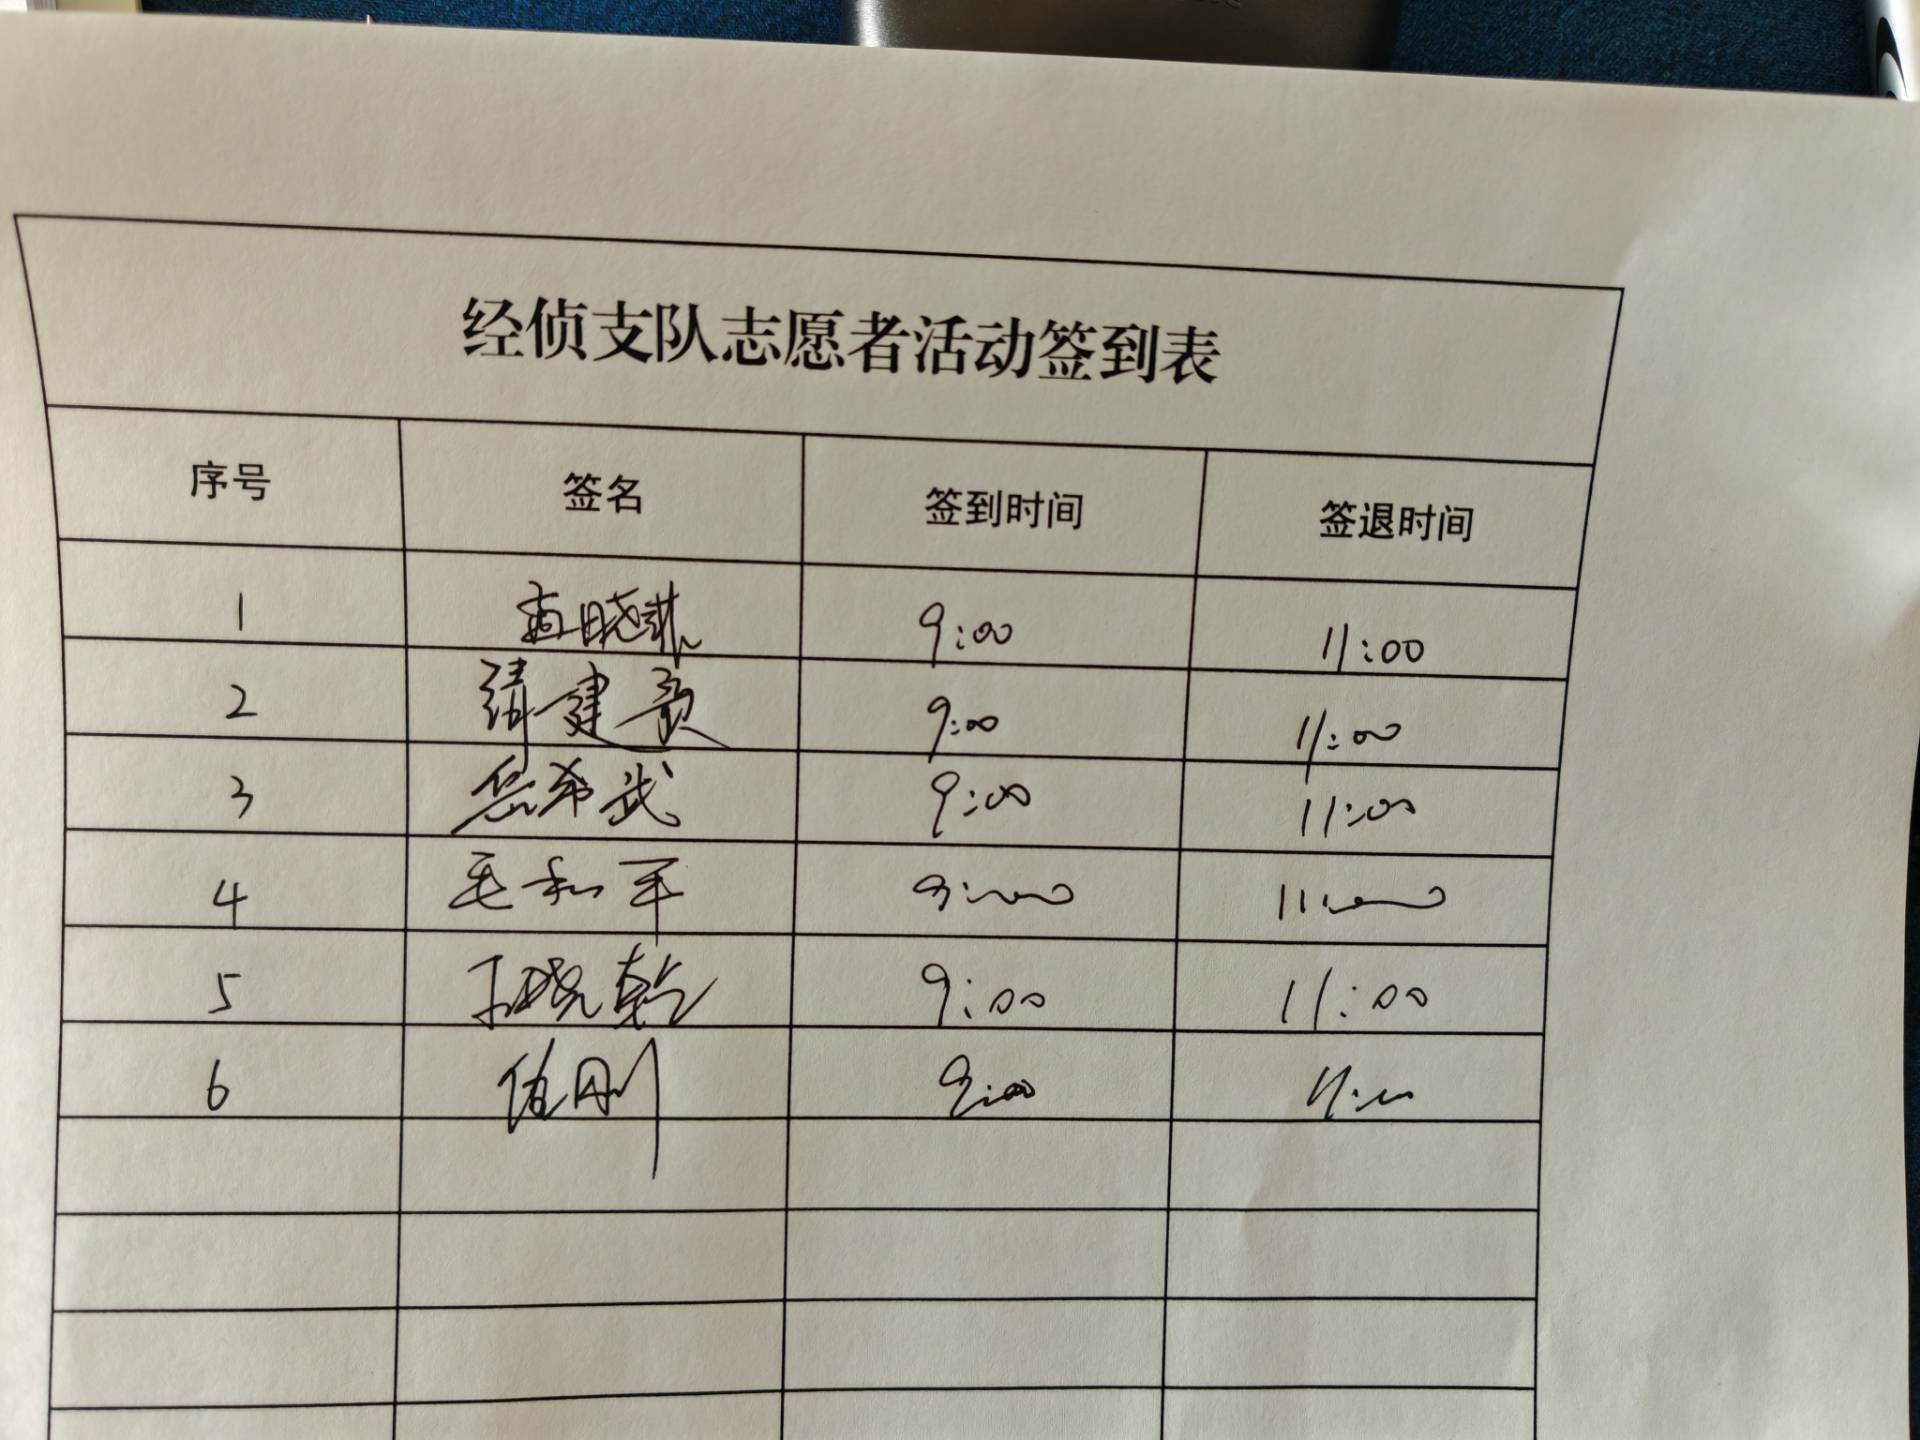 经侦支队志愿者活动签到表
序号 签名 签到时间 签退时间
1 9:00 11:00
2 建 9:00 11:00
3 岳希武 9:00 11:00
4 毛和平 9:00 11:00
5 王晓乾 9:00 11:00
6 刚 9:00 11:00